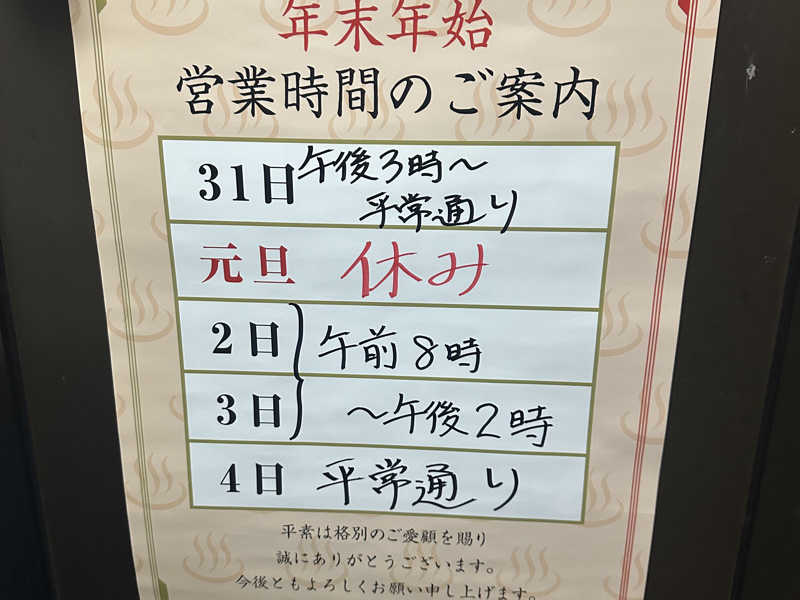 年末年始
営業時間のご案内
31日 午後3時～
平常通り
元旦 休み
2日 午前8時
3日 ～午後2時
4日 平常通り
平素は格別のご愛顧を賜り
誠にありがとうございます。
今後ともよろしくお願い申し上げます。